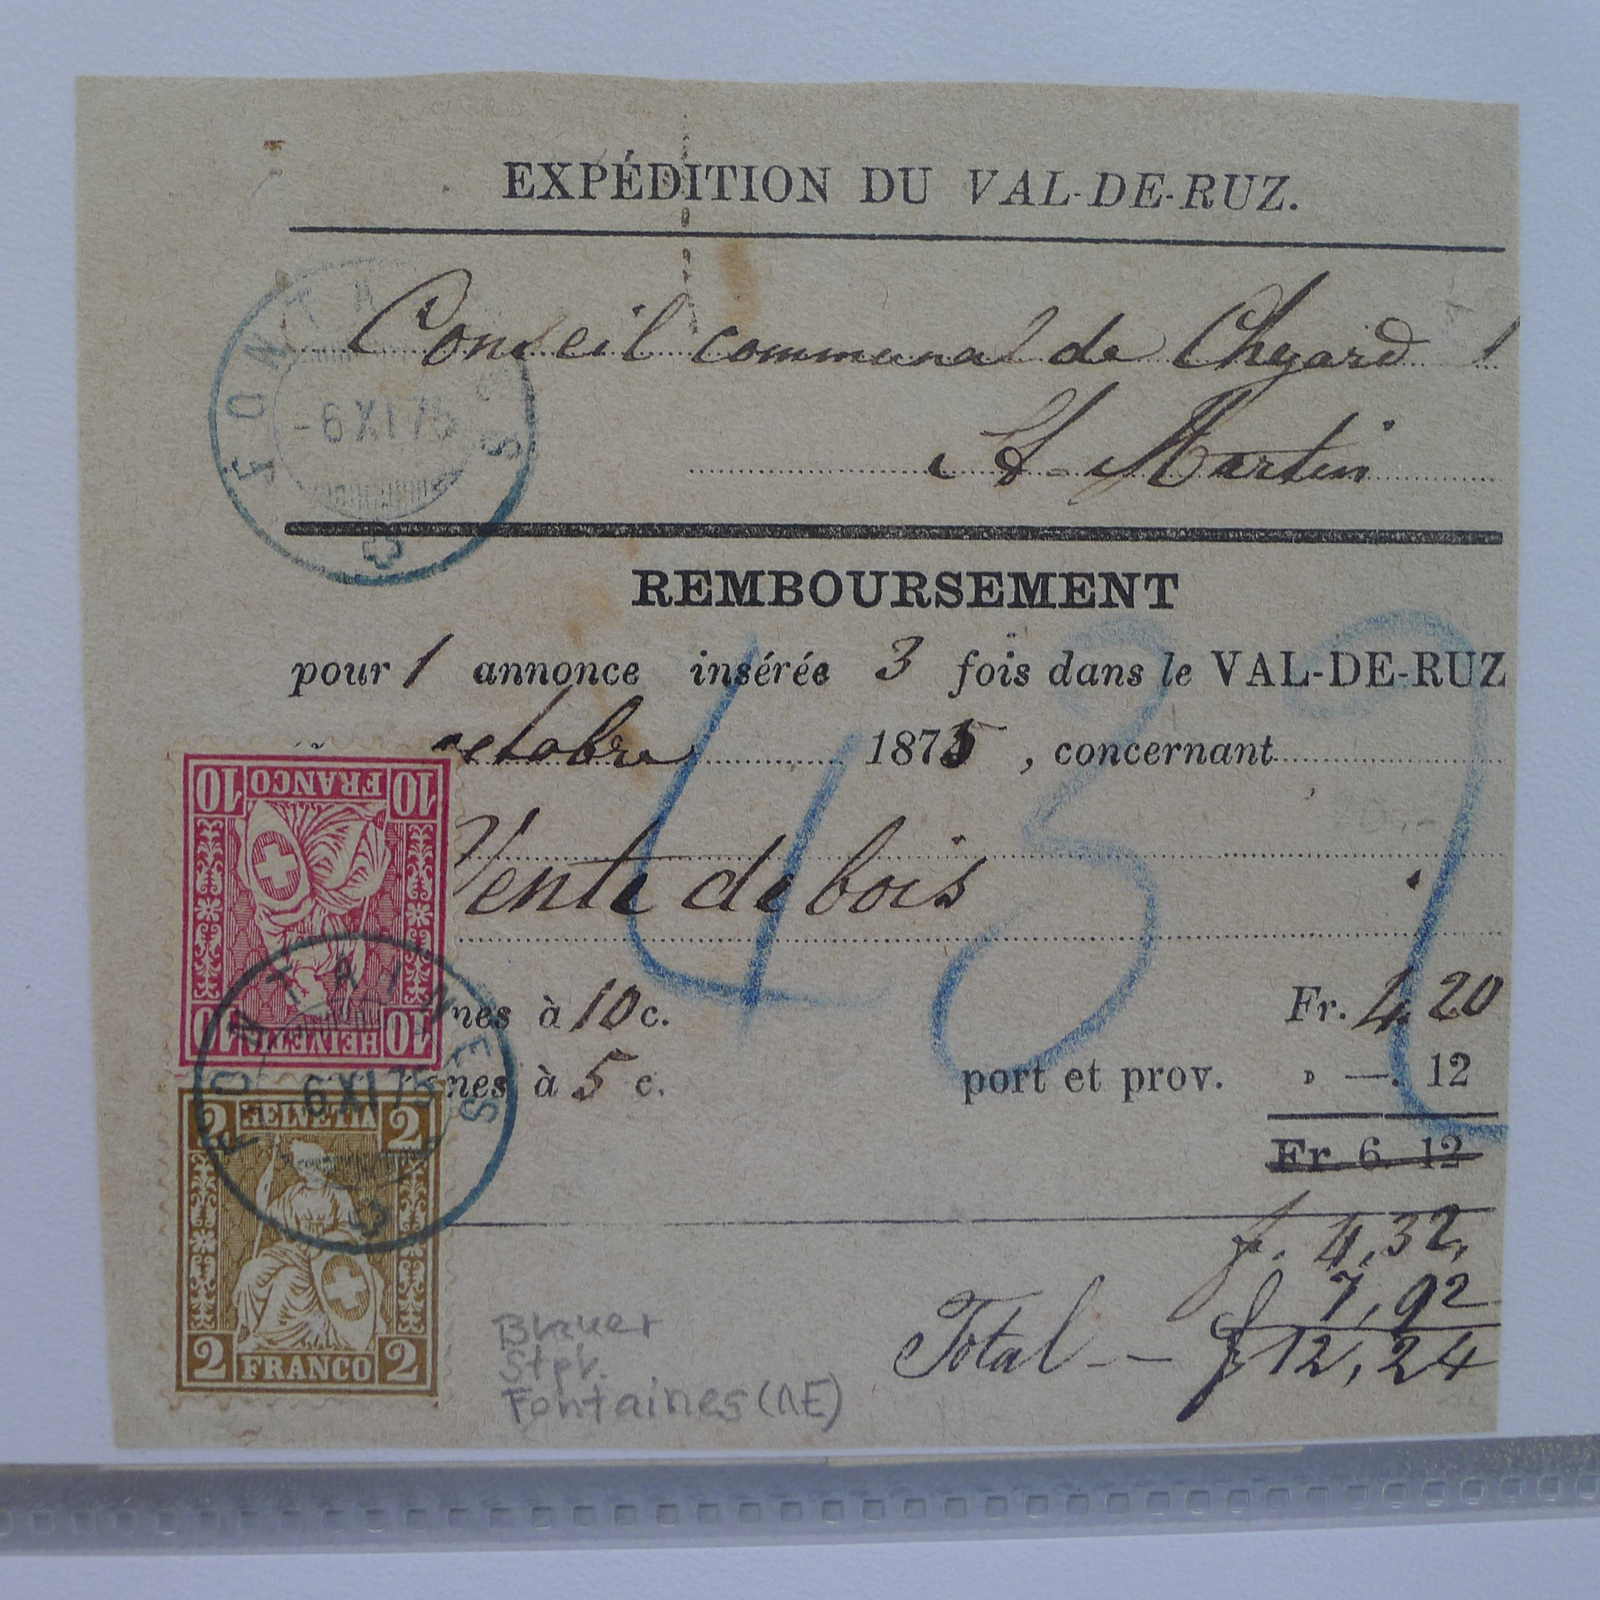 EXPÉDITION DU VAL-DE-RUZ.
Conseil communal de Chézard
St-Martin
FONTAINES
-6 XI 75
REMBOURSEMENT
pour 1 annonce insérée 3 fois dans le VAL-DE-RUZ
octobre 1875, concernant
Vente de bois
432
10 FRANCO 10
10 HELVETIA 10
nes à 10 c. Fr. 4.20
nes à 5 c. port et prov. » —. 12
Fr. 6. 12
f. 4,32,
7,92
Total — f 12,24
FONTAINES
-6 XI 75
2 HELVETIA 2
2 FRANCO 2
Blauer
Stpl.
Fontaines (NE)